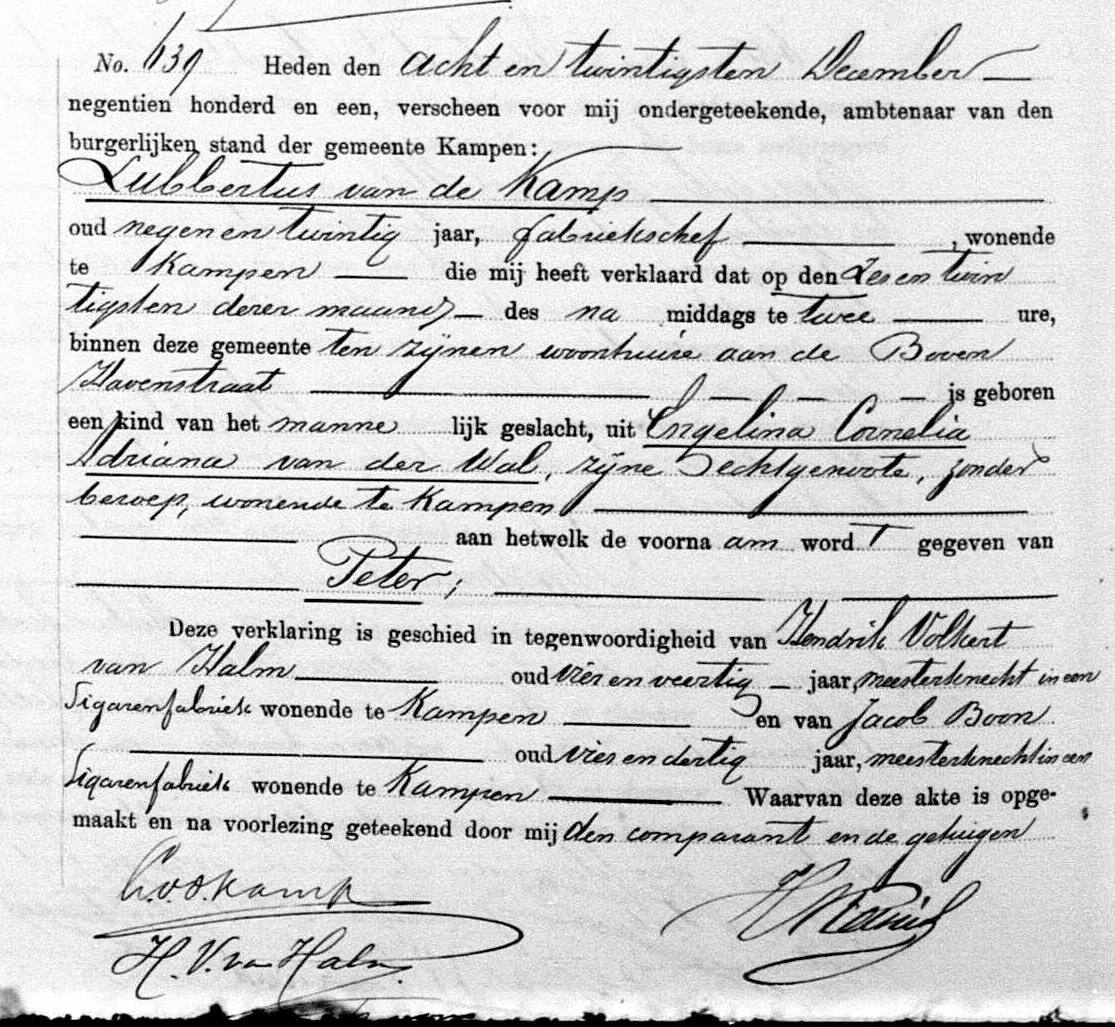 No. 639 Heden den acht en twintigsten December
negentien honderd en een, verscheen voor mij ondergeteekende, ambtenaar van den
burgerlijken stand der gemeente Kampen:
Lubbertus van de Kamp
oud negen en twintig jaar, fabriekschef, wonende
te Kampen die mij heeft verklaard dat op den zes en twin
tigsten dezer maand des na middags te twee ure,
binnen deze gemeente ten zijnen woonhuize aan de Boven
Havenstraat is geboren
een kind van het manne lijk geslacht, uit Engelina Cornelia
Adriana van der Wal, zijne echtgenoote, zonder
beroep, wonende te Kampen
aan hetwelk de voorna am word t gegeven van
Peter;
Deze verklaring is geschied in tegenwoordigheid van Hendrik Volkert
van Halm oud vier en veertig jaar, meesterknecht in een
Sigarenfabriek wonende te Kampen en van Jacob Boon
oud vier en dertig jaar, meesterknecht in een
Sigarenfabriek wonende te Kampen Waarvan deze akte is opge-
maakt en na voorlezing geteekend door mij den comparant en de getuigen
L. v. d. Kamp
H. V. van Halm